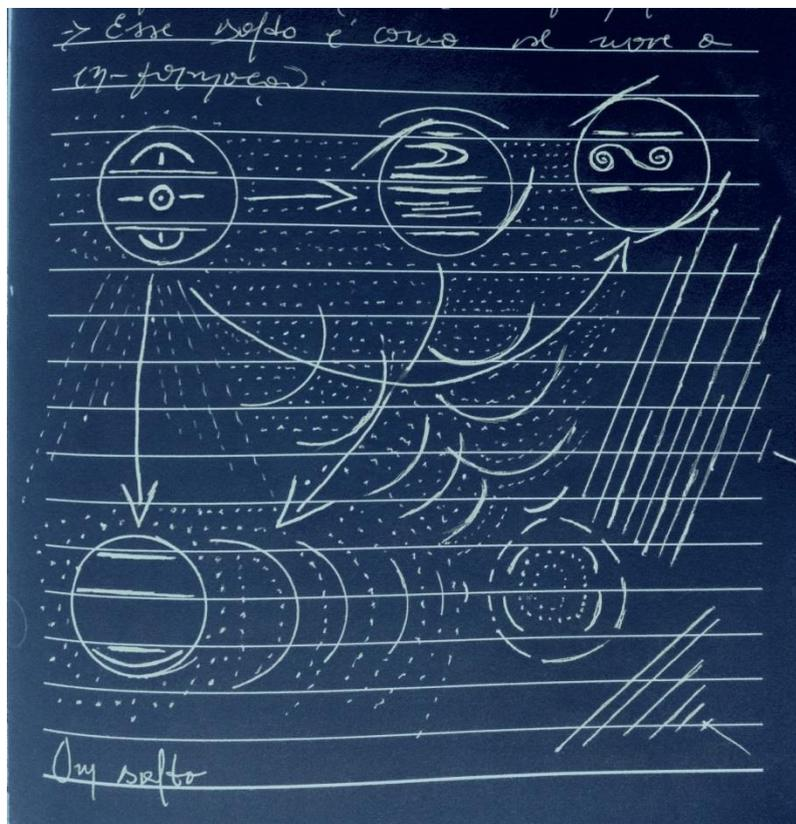 → Esse salto é como se move a
in-formação.
Um salto